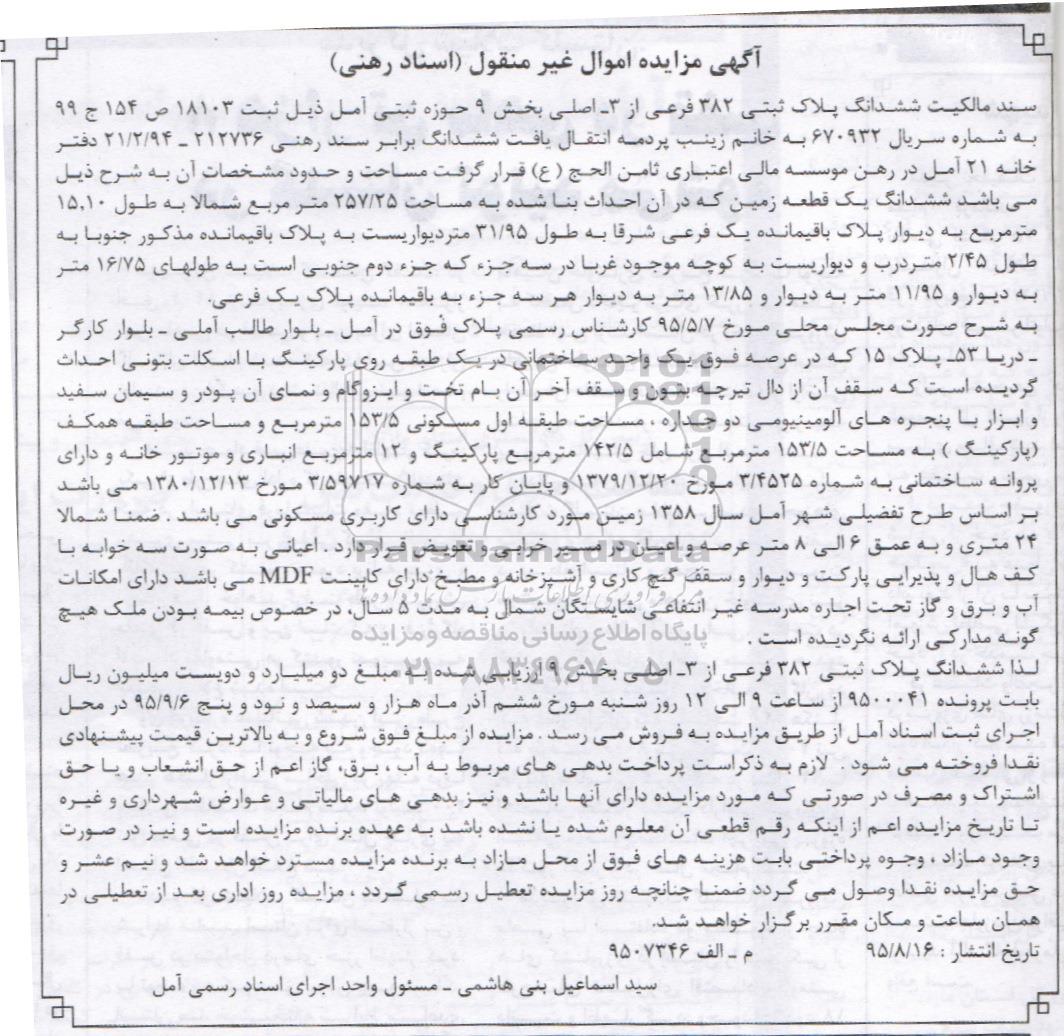 آگهی مزایده اموال غیر منقول (اسناد رهنی)
سند مالکیت ششدانگ پلاک ثبتی ۳۸۲ فرعی از ۳ـ اصلی بخش ۹ حوزه ثبتی آمل ذیل ثبت ۱۸۱۰۳ ص ۱۵۴ ج ۹۹
به شماره سریال ۶۷۰۹۳۲ به خانم زینب پردمه انتقال یافت ششدانگ برابر سند رهنی ۲۱۲۷۳۶ ـ ۲۱/۲/۹۴ دفتر
خانه ۲۱ آمل در رهن موسسه مالی اعتباری ثامن الحج (ع) قرار گرفت مساحت و حدود مشخصات آن به شرح ذیل
می باشد ششدانگ یک قطعه زمین که در آن احداث بنا شده به مساحت ۲۵۷/۲۵ متر مربع شمالا به طول ۱۵,۱۰
مترمربع به دیوار پلاک باقیمانده یک فرعی شرقا به طول ۳۱/۹۵ متردیواریست به پلاک باقیمانده مذکور جنوبا به
طول ۲/۴۵ متردرب و دیواریست به کوچه موجود غربا در سه جزء که جزء دوم جنوبی است به طولهای ۱۶/۷۵ متر
به دیوار و ۱۱/۹۵ متر به دیوار و ۱۳/۸۵ متر به دیوار هر سه جزء به باقیمانده پلاک یک فرعی.
به شرح صورت مجلس محلی مورخ ۹۵/۵/۷ کارشناس رسمی پلاک فوق در آمل ـ بلوار طالب آملی ـ بلوار کارگر
ـ دریا ۵۳ـ پلاک ۱۵ که در عرصه فوق یک واحد ساختمانی در یک طبقه روی پارکینگ با اسکلت بتونی احداث
گردیده است که سقف آن از دال تیرچه بتون و سقف آخر آن بام تخت و ایزوگام و نمای آن پودر و سیمان سفید
و ابزار با پنجره های آلومینیومی دو جداره ، مساحت طبقه اول مسکونی ۱۵۳/۵ مترمربع و مساحت طبقه همکف
(پارکینگ ) به مساحت ۱۵۳/۵ مترمربع شامل ۱۴۲/۵ مترمربع پارکینگ و ۱۲ مترمربع انباری و موتور خانه و دارای
پروانه ساختمانی به شماره ۳/۴۵۲۵ مورخ ۱۳۷۹/۱۲/۲۰ و پایان کار به شماره ۳/۵۹۷۱۷ مورخ ۱۳۸۰/۱۲/۱۳ می باشد
بر اساس طرح تفضیلی شهر آمل سال ۱۳۵۸ زمین مورد کارشناسی دارای کاربری مسکونی می باشد . ضمنا شمالا
۲۴ متری و به عمق ۶ الی ۸ متر عرصه و اعیان در مسیر خرابی و تعویض قرار دارد . اعیانی به صورت سه خوابه با
کف هال و پذیرایی پارکت و دیوار و سقف گچ کاری و آشپزخانه و مطبخ دارای کابینت MDF می باشد دارای امکانات
آب و برق و گاز تحت اجاره مدرسه غیر انتفاعی شایستگان شمال به مدت ۵ سال، در خصوص بیمه بودن ملک هیچ
گونه مدارکی ارائه نگردیده است .
لذا ششدانگ پلاک ثبتی ۳۸۲ فرعی از ۳ـ اصلی بخش ۹ ارزیابی شده به مبلغ دو میلیارد و دویست میلیون ریال
بابت پرونده ۹۵۰۰۰۴۱ از ساعت ۹ الی ۱۲ روز شنبه مورخ ششم آذر ماه هزار و سیصد و نود و پنج ۹۵/۹/۶ در محل
اجرای ثبت اسناد آمل از طریق مزایده به فروش می رسد . مزایده از مبلغ فوق شروع و به بالاترین قیمت پیشنهادی
نقدا فروخته می شود . لازم به ذکراست پرداخت بدهی های مربوط به آب ، برق، گاز اعم از حق انشعاب و یا حق
اشتراک و مصرف در صورتی که مورد مزایده دارای آنها باشد و نیز بدهی های مالیاتی و عوارض شهرداری و غیره
تا تاریخ مزایده اعم از اینکه رقم قطعی آن معلوم شده یا نشده باشد به عهده برنده مزایده است و نیز در صورت
وجود مازاد ، وجوه پرداختی بابت هزینه های فوق از محل مازاد به برنده مزایده مسترد خواهد شد و نیم عشر و
حق مزایده نقدا وصول می گردد ضمنا چنانچه روز مزایده تعطیل رسمی گردد ، مزایده روز اداری بعد از تعطیلی در
همان ساعت و مکان مقرر برگزار خواهد شد.
تاریخ انتشار : ۹۵/۸/۱۶ م ـ الف ۹۵۰۷۳۴۶
سید اسماعیل بنی هاشمی ـ مسئول واحد اجرای اسناد رسمی آمل
ParsNamadData
پایگاه اطلاع رسانی مناقصه و مزایده